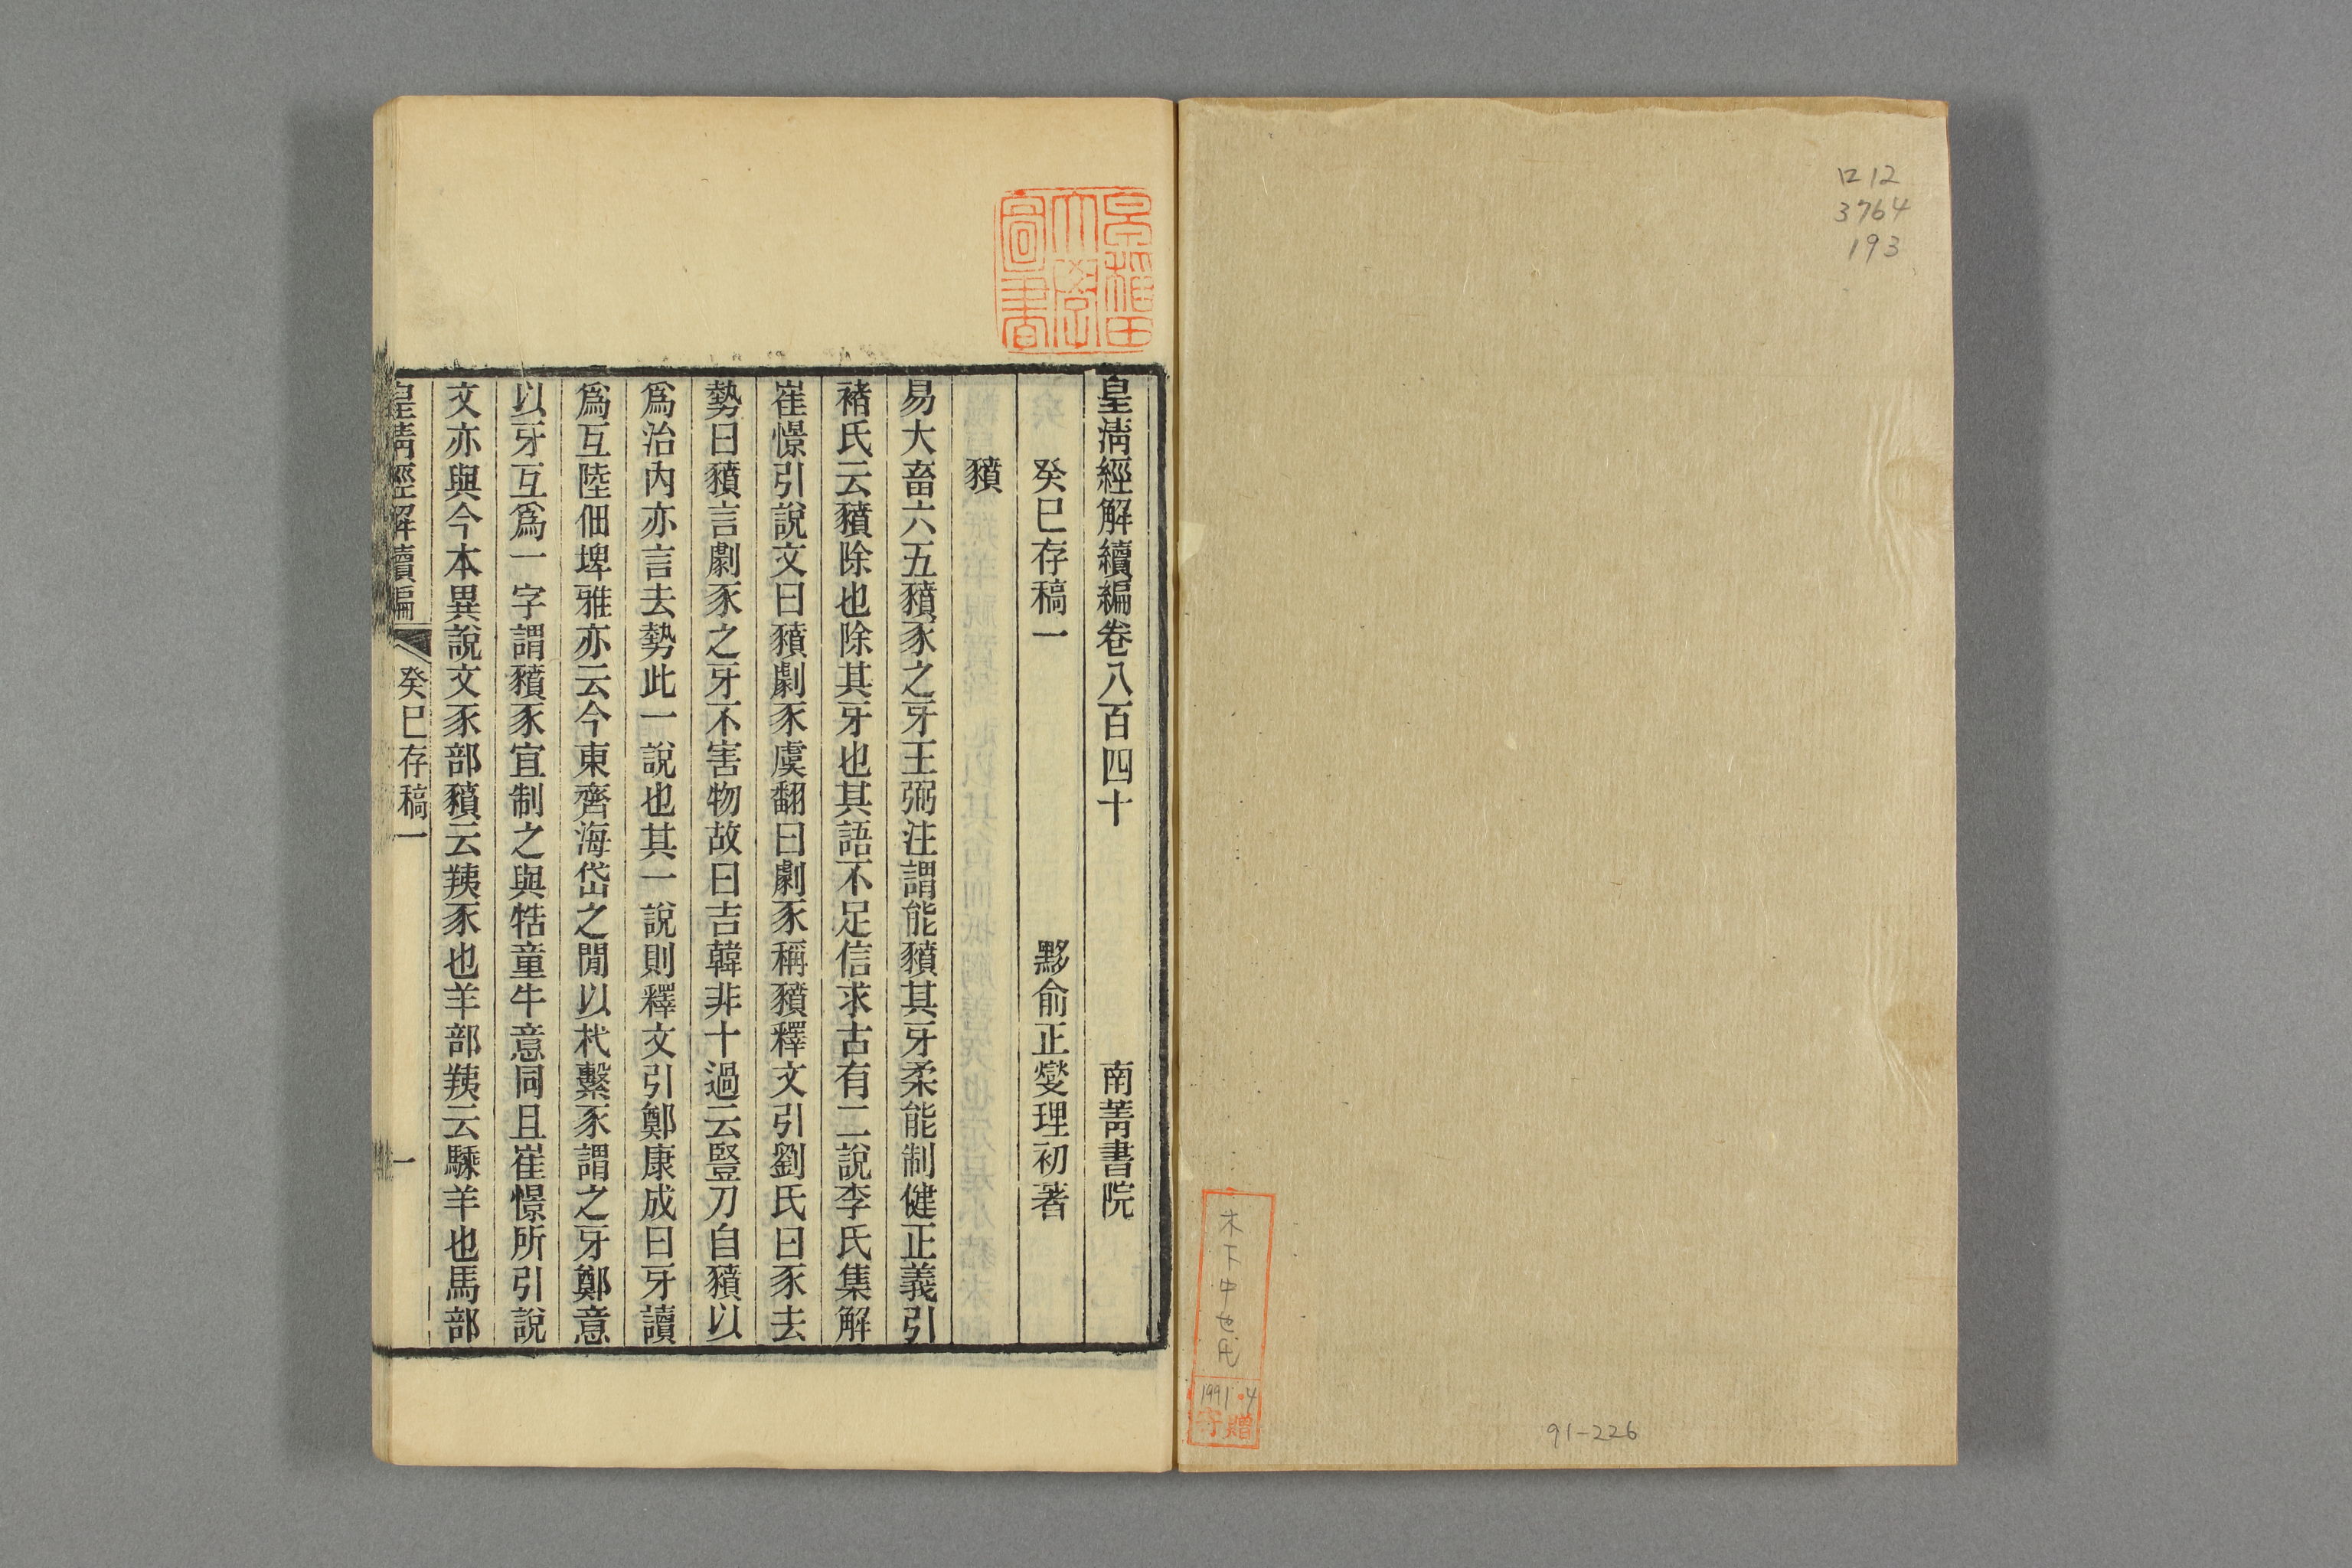 ロ12
3764
193
木下中也氏
1991.4
寄贈
91-226
早稲田
大學
圖書
皇清經解續編卷八百四十 南菁書院
癸巳存稿一 黟俞正燮理初著
豶
易大畜六五豶豕之牙王弼注謂能豶其牙柔能制健正義引
褚氏云豶除也除其牙也其語不足信求古有二說李氏集解
崔憬引說文曰豶劇豕虞翻曰劇豕稱豶釋文引劉氏曰豕去
勢曰豶言劇豕之牙不害物故曰吉韓非十過云豎刀自豶以
爲治內亦言去勢此一說也其一說則釋文引鄭康成曰牙讀
爲互陸佃埤雅亦云今東齊海岱之閒以杙繫豕謂之牙鄭意
以牙互爲一字謂豶豕宜制之與牿童牛意同且崔憬所引說
文亦與今本異說文豕部豶云羠豕也羊部羠云騬羊也馬部
皇清經解續編 癸巳存稿一 一